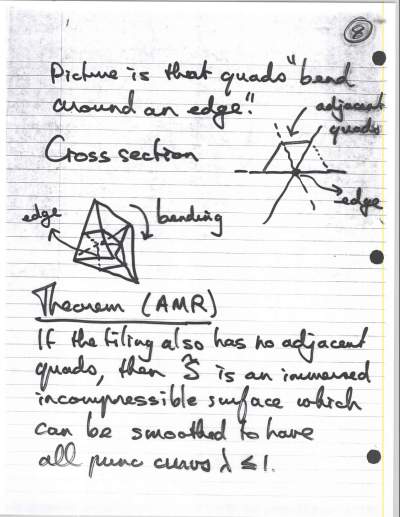 8
Picture is that quads "bend
around an edge".
adjacent
quads
Cross section
edge
edge
bending
Theorem (AMR)
If the filing also has no adjacent
quads, then S̃ is an immersed
incompressible surface which
can be smoothed to have
all princ curvs λ ≤ 1.